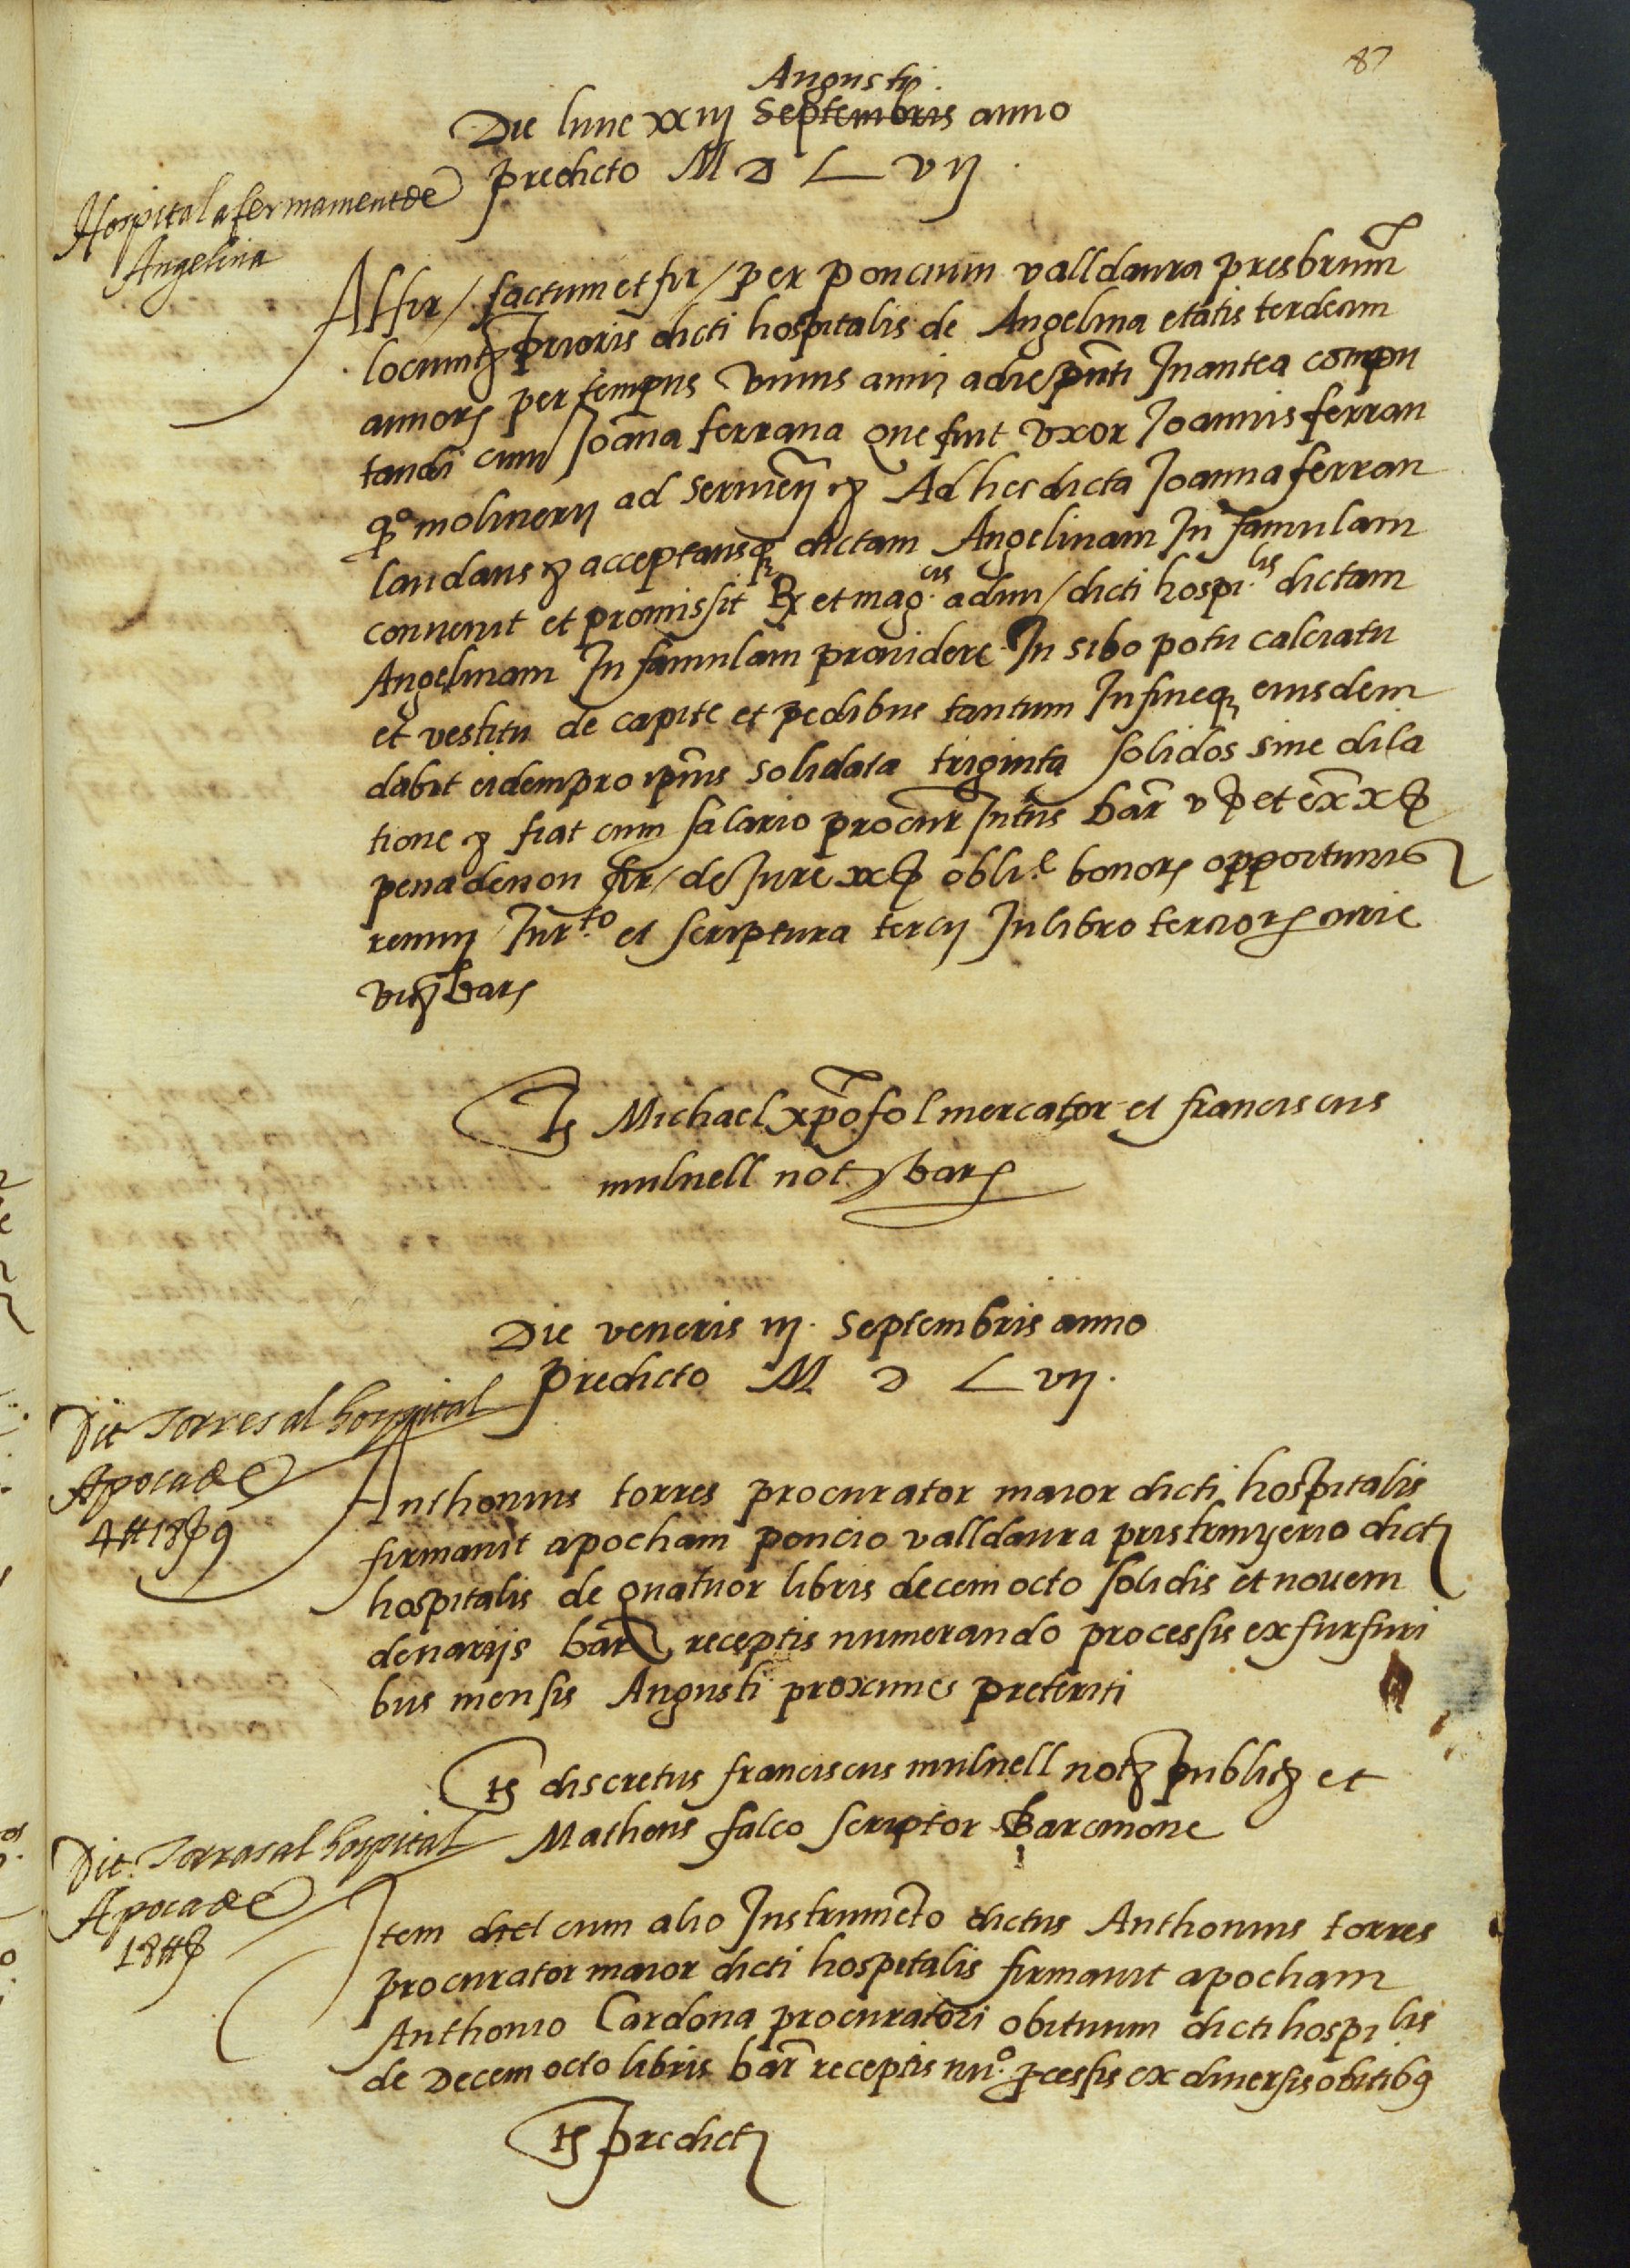 87
Augusti
Die lune xxiij Septembris anno
predicto M D L vij.
Hospital afermament de
Angelina
Affir / factum et fir / per poncium valldaura presbrum
locumtz prioris dicti hospitalis de Angelina etatis terdecim
annorz per tempus unius anni adie pnti Inantea compu
tandi cum Joana ferrana que fuit uxor Joannis ferran
qo molinerij ad servien̄ Ad hec dicta Joanna ferran
laudans acceptansq dictam Angelinam In famulam
convenit et promissit Rx et mag.cis admi / dicti hospi.lis dictam
Angelinam In famulam providere In sibo potu calciatu
et vestitu de capite et pedibus tantum Infineq eiusdem
dabit eidem pro ipsius solidata triginta solidos sine dila
tione fiat cum salario procur Intus bar v ß et ex x ß
pena de non fir / de Jure xx ß obli.e bonorz opportunis
renun Jur.to et scriptura tercij In libro terciorz curie
bar
Ts Michael xpofol mercator et franciscus
mulnell not bar
Die veneris iij. Septembris anno
Predicto M D L vij.
Dit Torres al hospital
Apoca de
4 ₶ 18 ß 9
Anthonius torres procurator maior dicti hospitalis
firmavit apocham poncio valldaura pristinyerio dict
hospitalis de quatuor libris decem octo solidis et novem
denarijs bar receptis numerando processis ex furfuri
bus mensis Augusti proximes preteriti
Ts discretus franciscus mulnell not public et
Matheus falco scriptor Barcinone
Dit Torras al hospital
Apoca de
18 ₶ ß
Item die cum alio Instrumeto dictus Anthonius torres
procurator maior dicti hospitalis firmavit apocham
Anthonio Cardona procuratori obituum dicti hospilis
de Decem octo libris bar receptis nu.o pcessis ex diversis obitibq
Ts predict